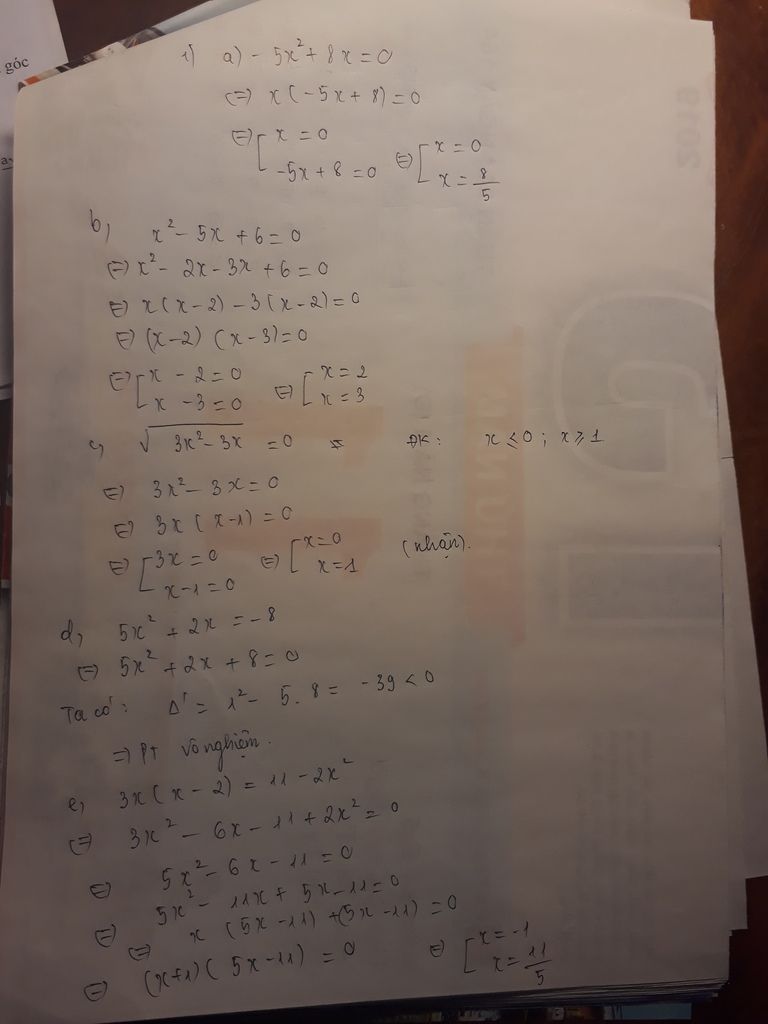 góc
1) a) - 5x² + 8x = 0
(=) x(-5x + 8) = 0
(=) [ x = 0
-5x + 8 = 0 (=) [ x = 0
x = 8/5
b, x² - 5x + 6 = 0
(=) x² - 2x - 3x + 6 = 0
(=) x(x - 2) - 3(x - 2) = 0
(=) (x - 2) (x - 3) = 0
(=) [ x - 2 = 0
x - 3 = 0 (=) [ x = 2
x = 3
c, √(3x² - 3x) = 0 ĐK: x ≤ 0 ; x ≥ 1
(=) 3x² - 3x = 0
(=) 3x(x - 1) = 0
(=) [ 3x = 0
x - 1 = 0 (=) [ x = 0
x = 1 (nhận).
d, 5x² + 2x = -8
(=) 5x² + 2x + 8 = 0
Ta có: Δ' = 1² - 5.8 = -39 < 0
=> PT vô nghiệm.
e, 3x(x - 2) = 11 - 2x²
(=) 3x² - 6x - 11 + 2x² = 0
(=) 5x² - 6x - 11 = 0
(=) 5x² - 11x + 5x - 11 = 0
(=) x(5x - 11) + (5x - 11) = 0
(=) (x+1)(5x - 11) = 0 (=) [ x = -1
x = 11/5